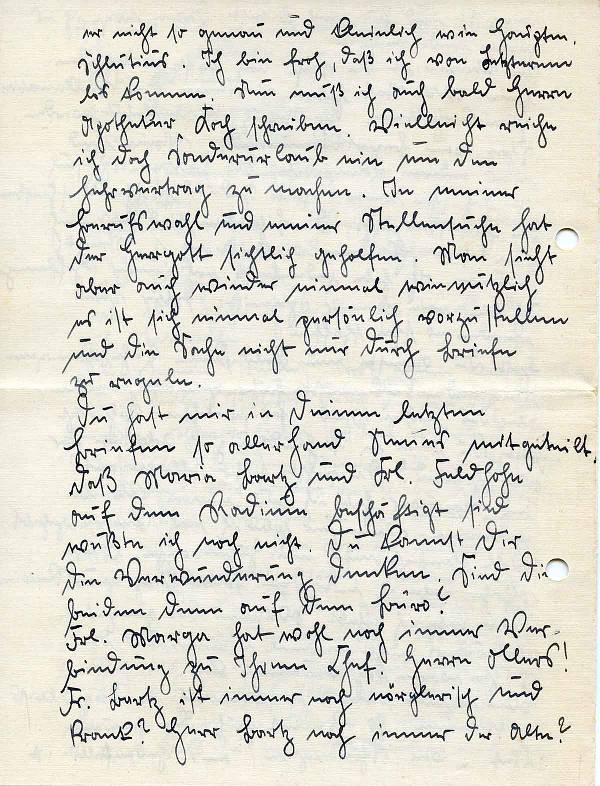 er nicht so genau und kleinlich wie Hauptm.
Schlutius. Ich bin froh, daß ich von Letzterem
los komme. Nun muß ich auch bald Herrn
Apotheker Koch schreiben. Vielleicht reiche
ich doch Sonderurlaub ein um den
Lehrvertrag zu machen. In meiner
Berufswahl und meiner Stellensuche hat
der Herrgott sichtlich geholfen. Man sieht
aber auch wieder einmal wie nützlich
es ist sich einmal persönlich vorzustellen
und die Sache nicht nur durch Briefe
zu regeln.
Du hast mir in Deinem letzten
Briefen so allerhand Neues mitgeteilt.
Daß Maria Bartz und Frl. Feldhohn
auf dem Radium beschäftigt sind
wußte ich noch nicht. Du kannst Dir
die Verwunderung denken. Sind die
beiden denn auf dem Büro?
Frl. Marga hat wohl noch immer Ver-
bindung zu Ihrem Chef. Herrn Ollers!
Fr. Bartz ist immer noch nörglerisch und
krank? Herr Bartz noch immer der Alte?